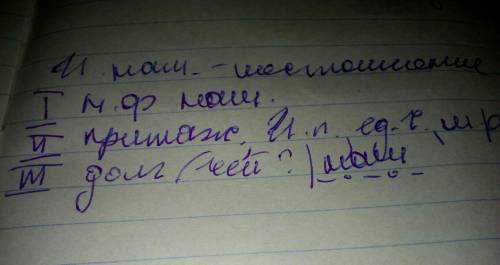 И. наш. - местоимение
I н.ф наш.
II притяж. И.п. ед.ч. м р
III долг (чей?) наш